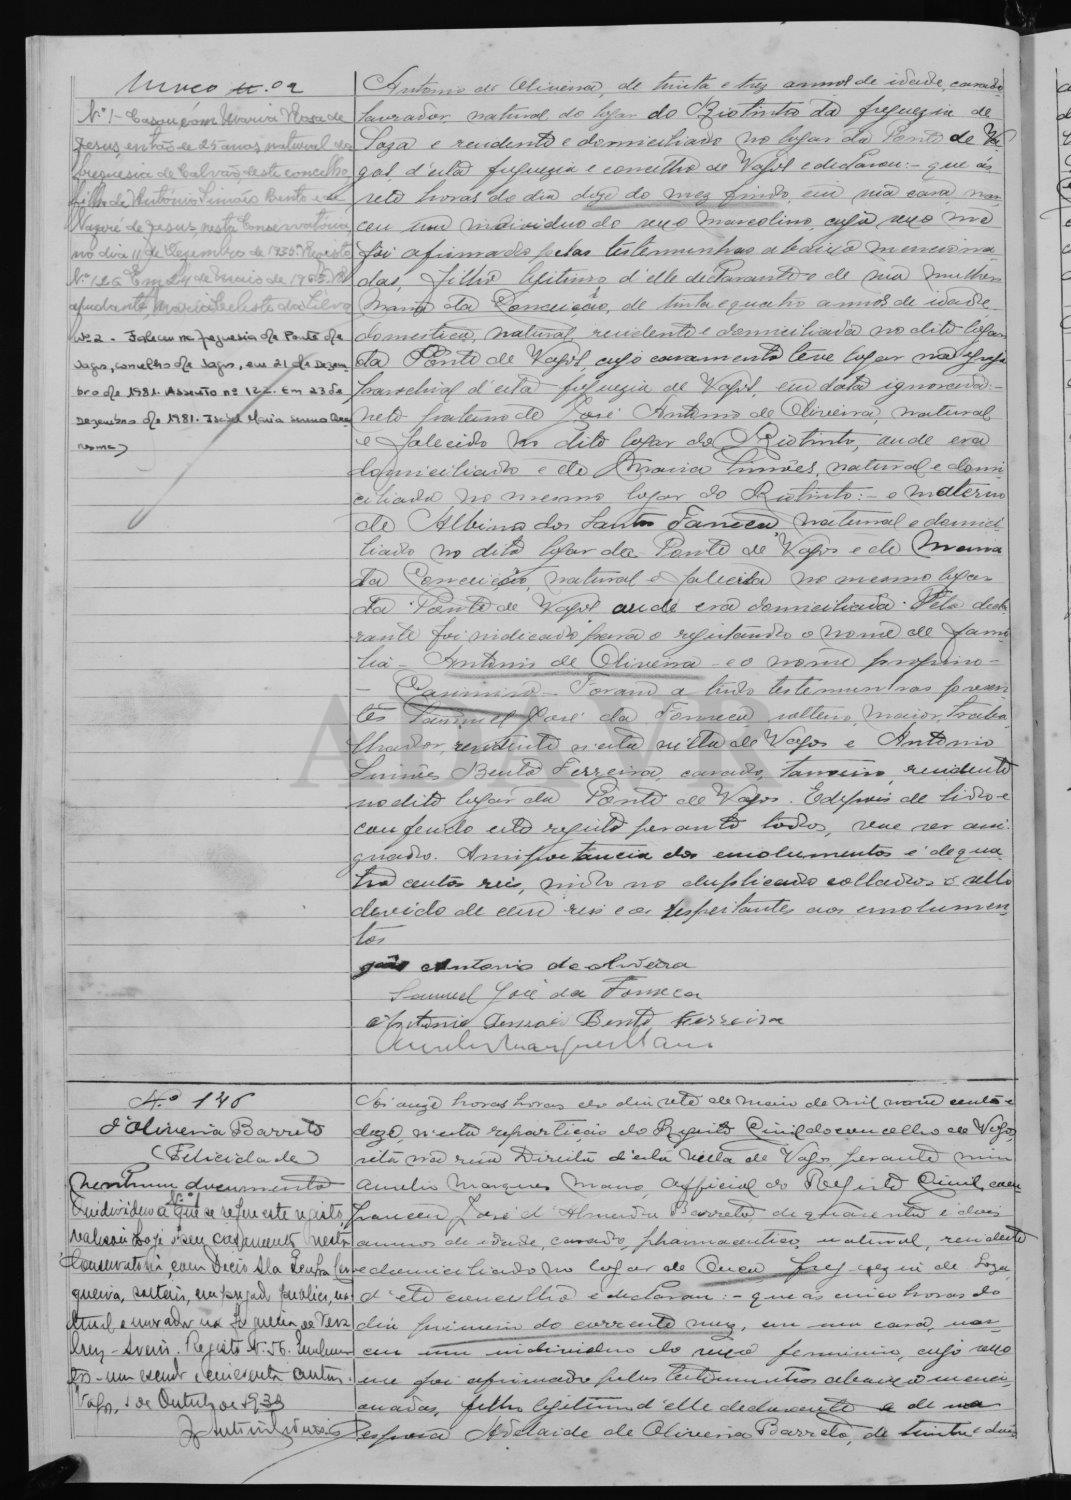 Antonio de Oliveira, de trinta e tres annos de idade, casado
lavrador natural do logar do Riotinto da freguezia de
Soza e residente e domiciliado no logar da Ponte de Va-
gos d'esta freguezia e concelho de Vagos e declarou:- que ás
sete horas do dia doze do mez findo, em sua casa, nas-
ceu um individuo do sexo masculino, cujo sexo me
foi afirmado pelas testemunhas abaixo menciona-
das, filho legitimo d'elle declarante e de sua mulher
Maria da Conceição, de trinta e quatro annos de idade,
domestica, natural, residente e domiciliada no dito logar
da Ponte de Vagos, cujo casamento teve logar na egreja
parochial d'esta freguezia de Vagos, em data ignorada:-
neto paterno de José Antonio de Oliveira, natural
e falecido no dito logar do Riotinto, aude era
domiciliado e de Maria Simões, natural e domi-
ciliada no mesmo logar do Riotinto:- e materno
de Albino dos Santos natural e domici-
liado no dito logar da Ponte de Vagos e de Maria
da Conceição, natural e falecida no mesmo logar
da Ponte de Vagos aude era domiciliada. Pelo decla-
rante foi indicado para o registando o nome de fami-
lia - Antonio de Oliveira - e o nome proprio -
- Casimiro - Foram a tudo testemunhas presen-
tes Samuel José da Fonseca solteiro, maior, traba-
lhador, residente n'esta villa de Vagos e Antonio
Simões Bento Ferreira, casado, residente
no dito logar da Ponte de Vagos. E depois de lido e
conferido este registo perante todos, vae ser assi-
gnado. A importancia dos emolumentos é de qua-
tro centos reis, indo no duplicado collados o sello
devido de cem reis e os respeitantes aos emolumen-
tos
Antonio de Oliveira
Samuel José da Fonseca
Antonio Bento Ferreira
Nº 1- Casou com Maria Rosa de
Jesus, então de 25 anos natural da
freguesia de Calvão deste concelho
filha de António Simões Bento e de
Nazaré de Jesus, nesta Conservatória
no dia 11 de Dezembro de 1935. Registo
Nº 126 Em 24 de Maio de
ajudante, Maria Celeste da Silva
Nº 2 - Faleceu na freguesia de Ponte de
Vagos, concelho de Vagos, em 21 de Dezem-
bro de 1981. Assento nº 122. Em 23 de
Dezembro de 1981. Isabel Maria
N.º 146
d'Oliveira Barreto
(Felicidade)
Nenhum documento
Nº 1
O individuo a que se refere este registo,
realisou hoje o seu casamento nesta
Conservatoria, com Decio
solteiro, empregado publico, na-
tural e morador na freguesia de Vera
Cruz - Aveiro. Registo Nº 56.
Vagos, 1 de Outubro de 1938
Ás onze horas horas do dia sete de Maio de mil nove centos e
doze, n'esta repartição do Registo Civil do concelho de Vagos,
sita na rua Direita d'esta Villa de Vagos, perante mim
Aurelio Marques Mano, official do Registo Civil, com-
pareceu José d'Almeida Barreto de quarenta e dois
annos de idade, casado, pharmaceutico, natural, residente
e domiciliado no logar de Ouca, freguezia de Soza,
d'este concelho e declarou:- que ás cinco horas do
dia primeiro do corrente mez, em sua casa, nas-
ceu um individuo do sexo feminino, cujo sexo
me foi afirmado pelas testemunhas abaixo menci-
onadas, filho legitimo d'elle declarante e de sua
esposa Adelaide de Oliveira Barreto, de trinta e dois